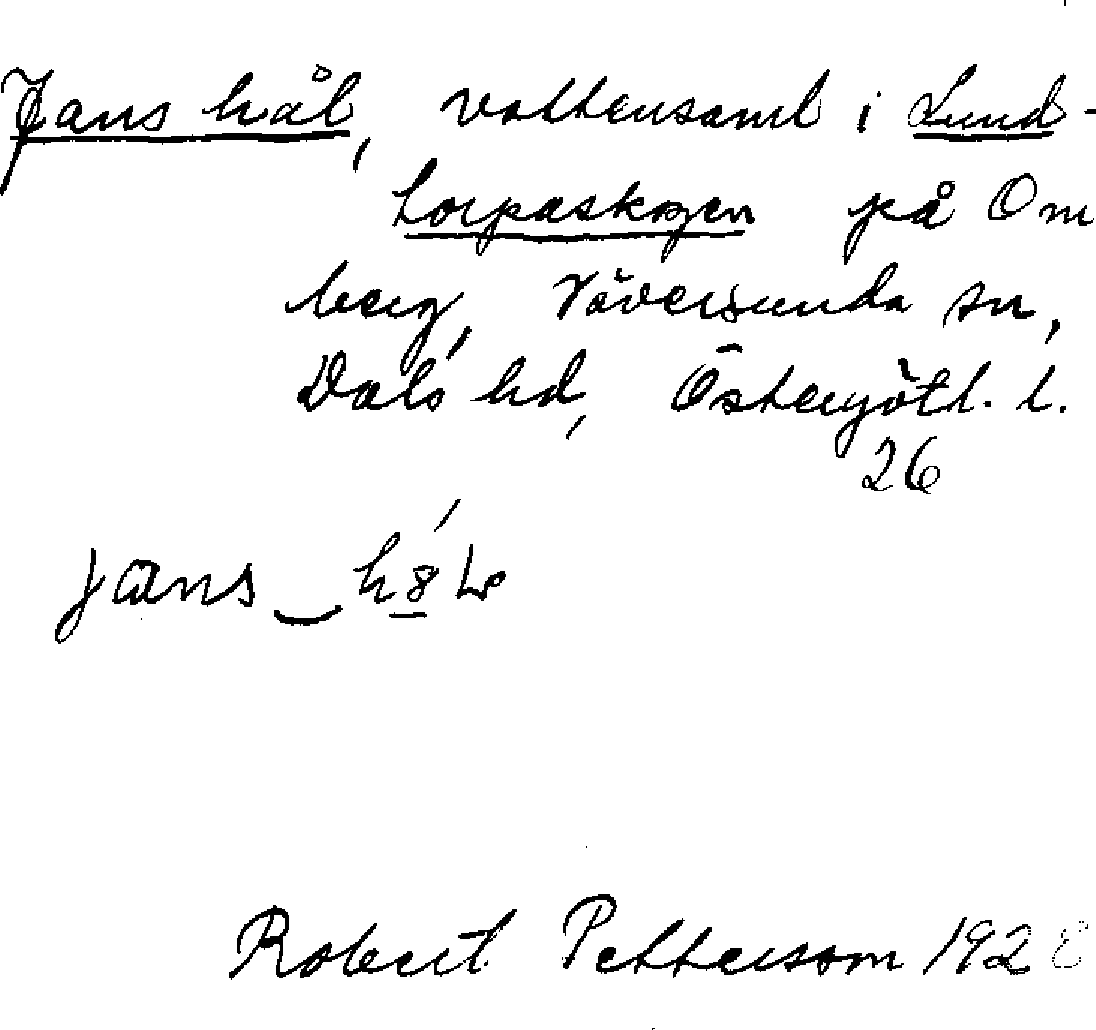 Jans hål, vattensaml i Lund-
torpaskogen på Om
berg, Väversunda sn,
Dals hd, Östergötl. l.
26
Robert Pettersson 1928